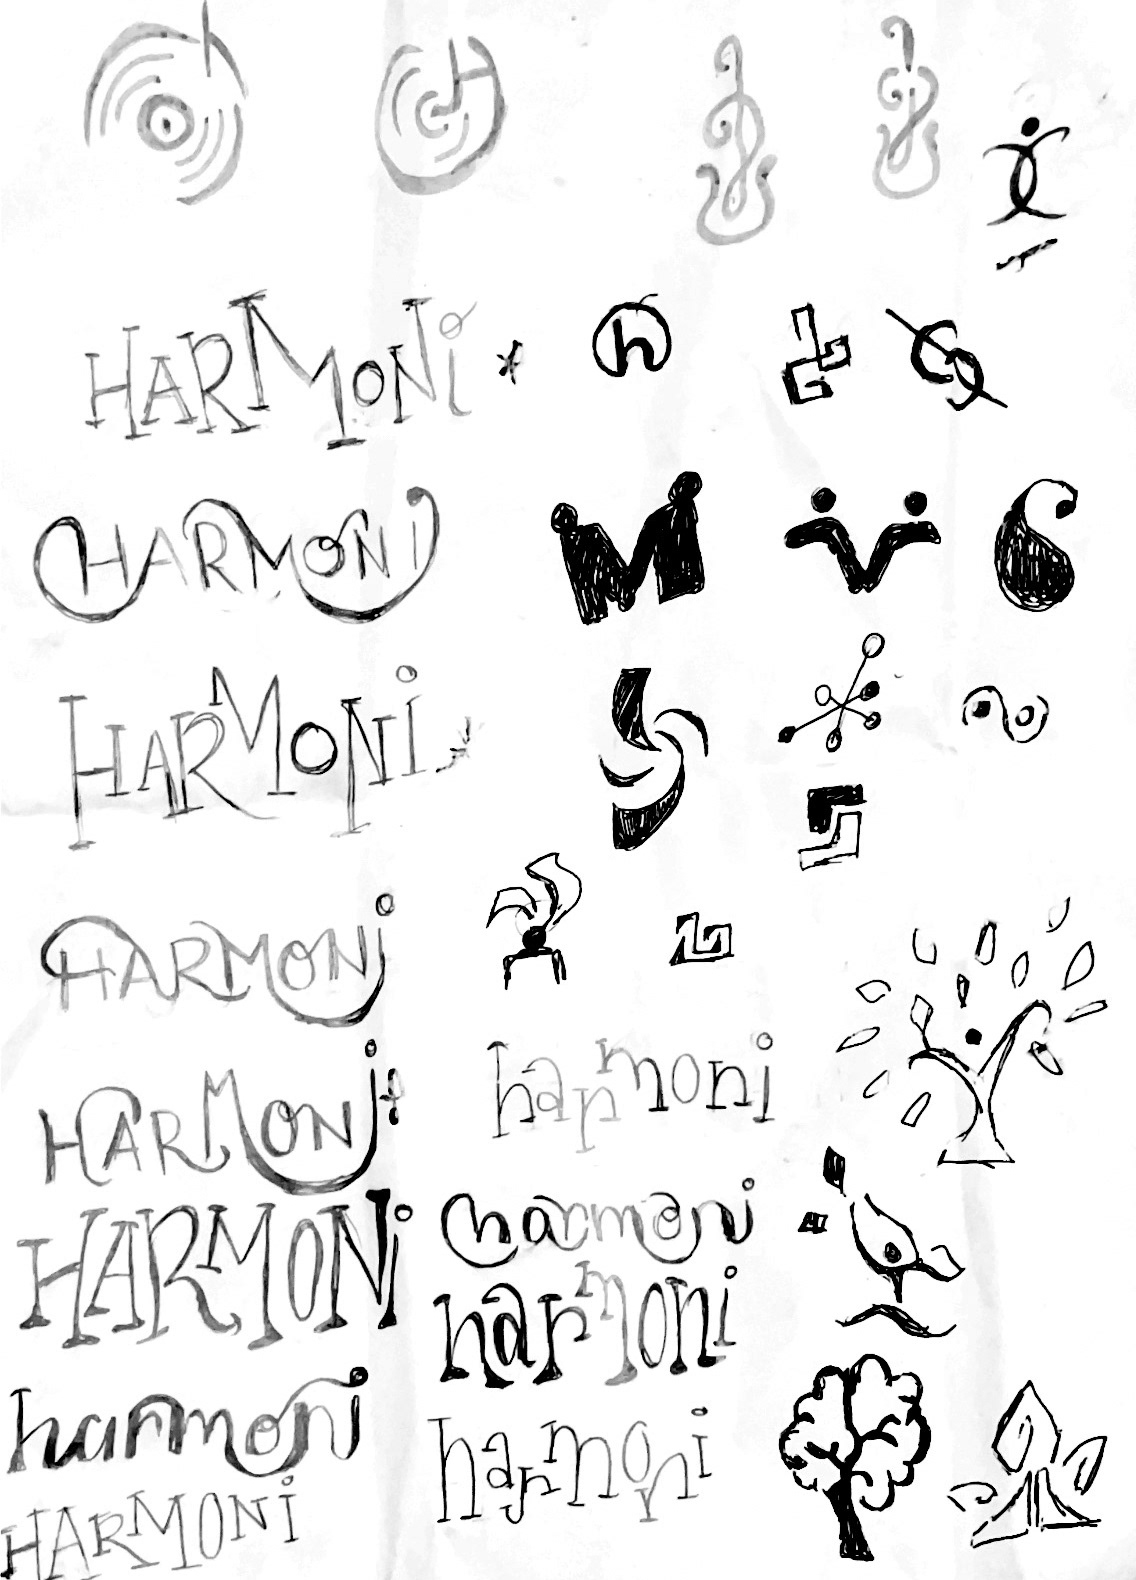 H
HARMONi
h
HARMONi
HARMONi
HARMONi
harmoni
HARMONi
HARMONi
harmoni
harmoni
harmoni
harmoni
HARMONi